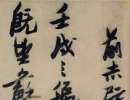 前赤壁
壬戌之秋
既望蘇